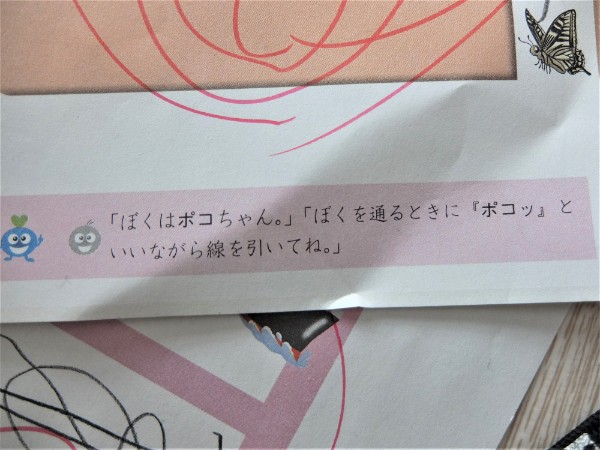 「ぼくはポコちゃん。」「ぼくを通るときに『ポコッ』と
いいながら線を引いてね。」